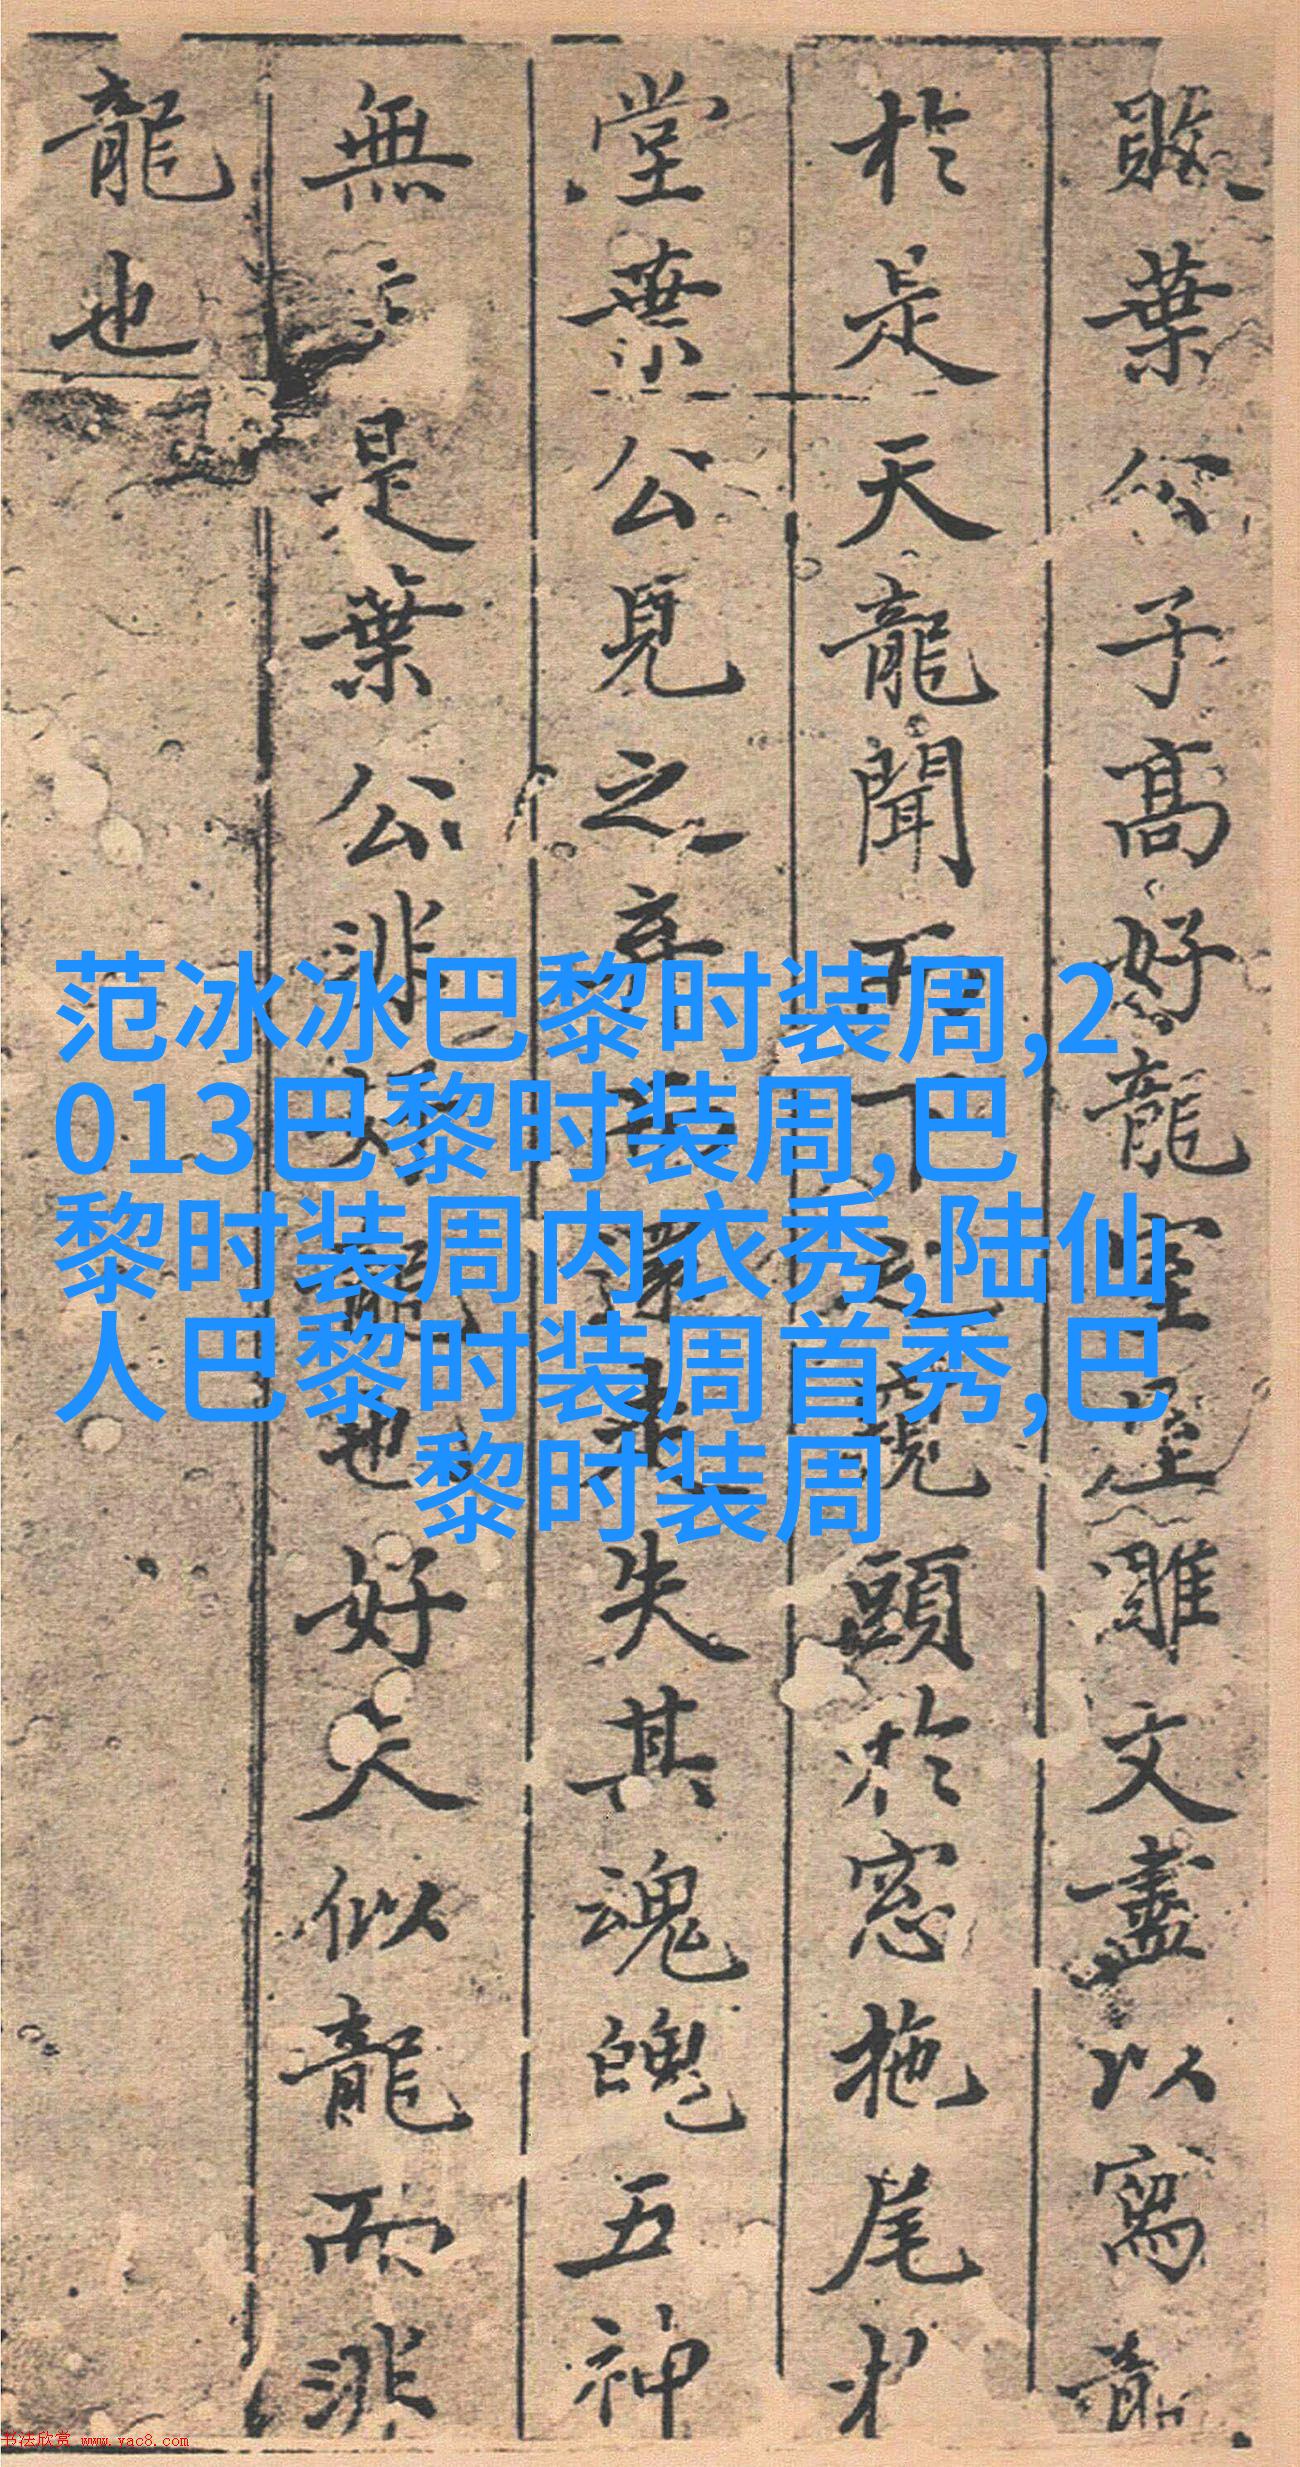 敗葉公子高好龍室雕文盡以寫龍
於是天龍聞而下之窺頭於窓拖尾於
堂葉公見之弃而還走失其魂魄五神
無主是葉公非好龍也好夫似龍而非
龍也
范冰冰巴黎时装周,2
013巴黎时装周,巴
黎时装周内衣秀,陆仙
人巴黎时装周首秀,巴
黎时装周
书法欣赏 www.yac8.com